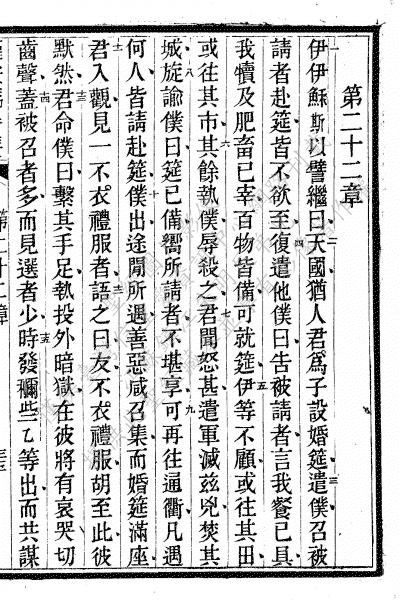 第二十二章
伊伊穌斯以譬繼曰天國猶人君爲子設婚筵遣僕召被
請者赴筵皆不欲至復遣他僕曰告被請者言我餐已具
我犢及肥畜已宰百物皆備可就筵伊等不顧或往其田
或往其市其餘執僕辱殺之君聞怒甚遣軍滅兹兇焚其
城旋諭僕曰筵已備嚮所請者不堪享可再往通衢凡遇
何人皆請赴筵僕出途閒所遇善惡咸召集而婚筵滿座
君入觀見一不衣禮服者語之曰友不衣禮服胡至此彼
默然君命僕曰繫其手足執投外暗獄在彼將有哀哭切
齒聲蓋被召者多而見選者少時發禰些乙等出而共謀
第二十二章